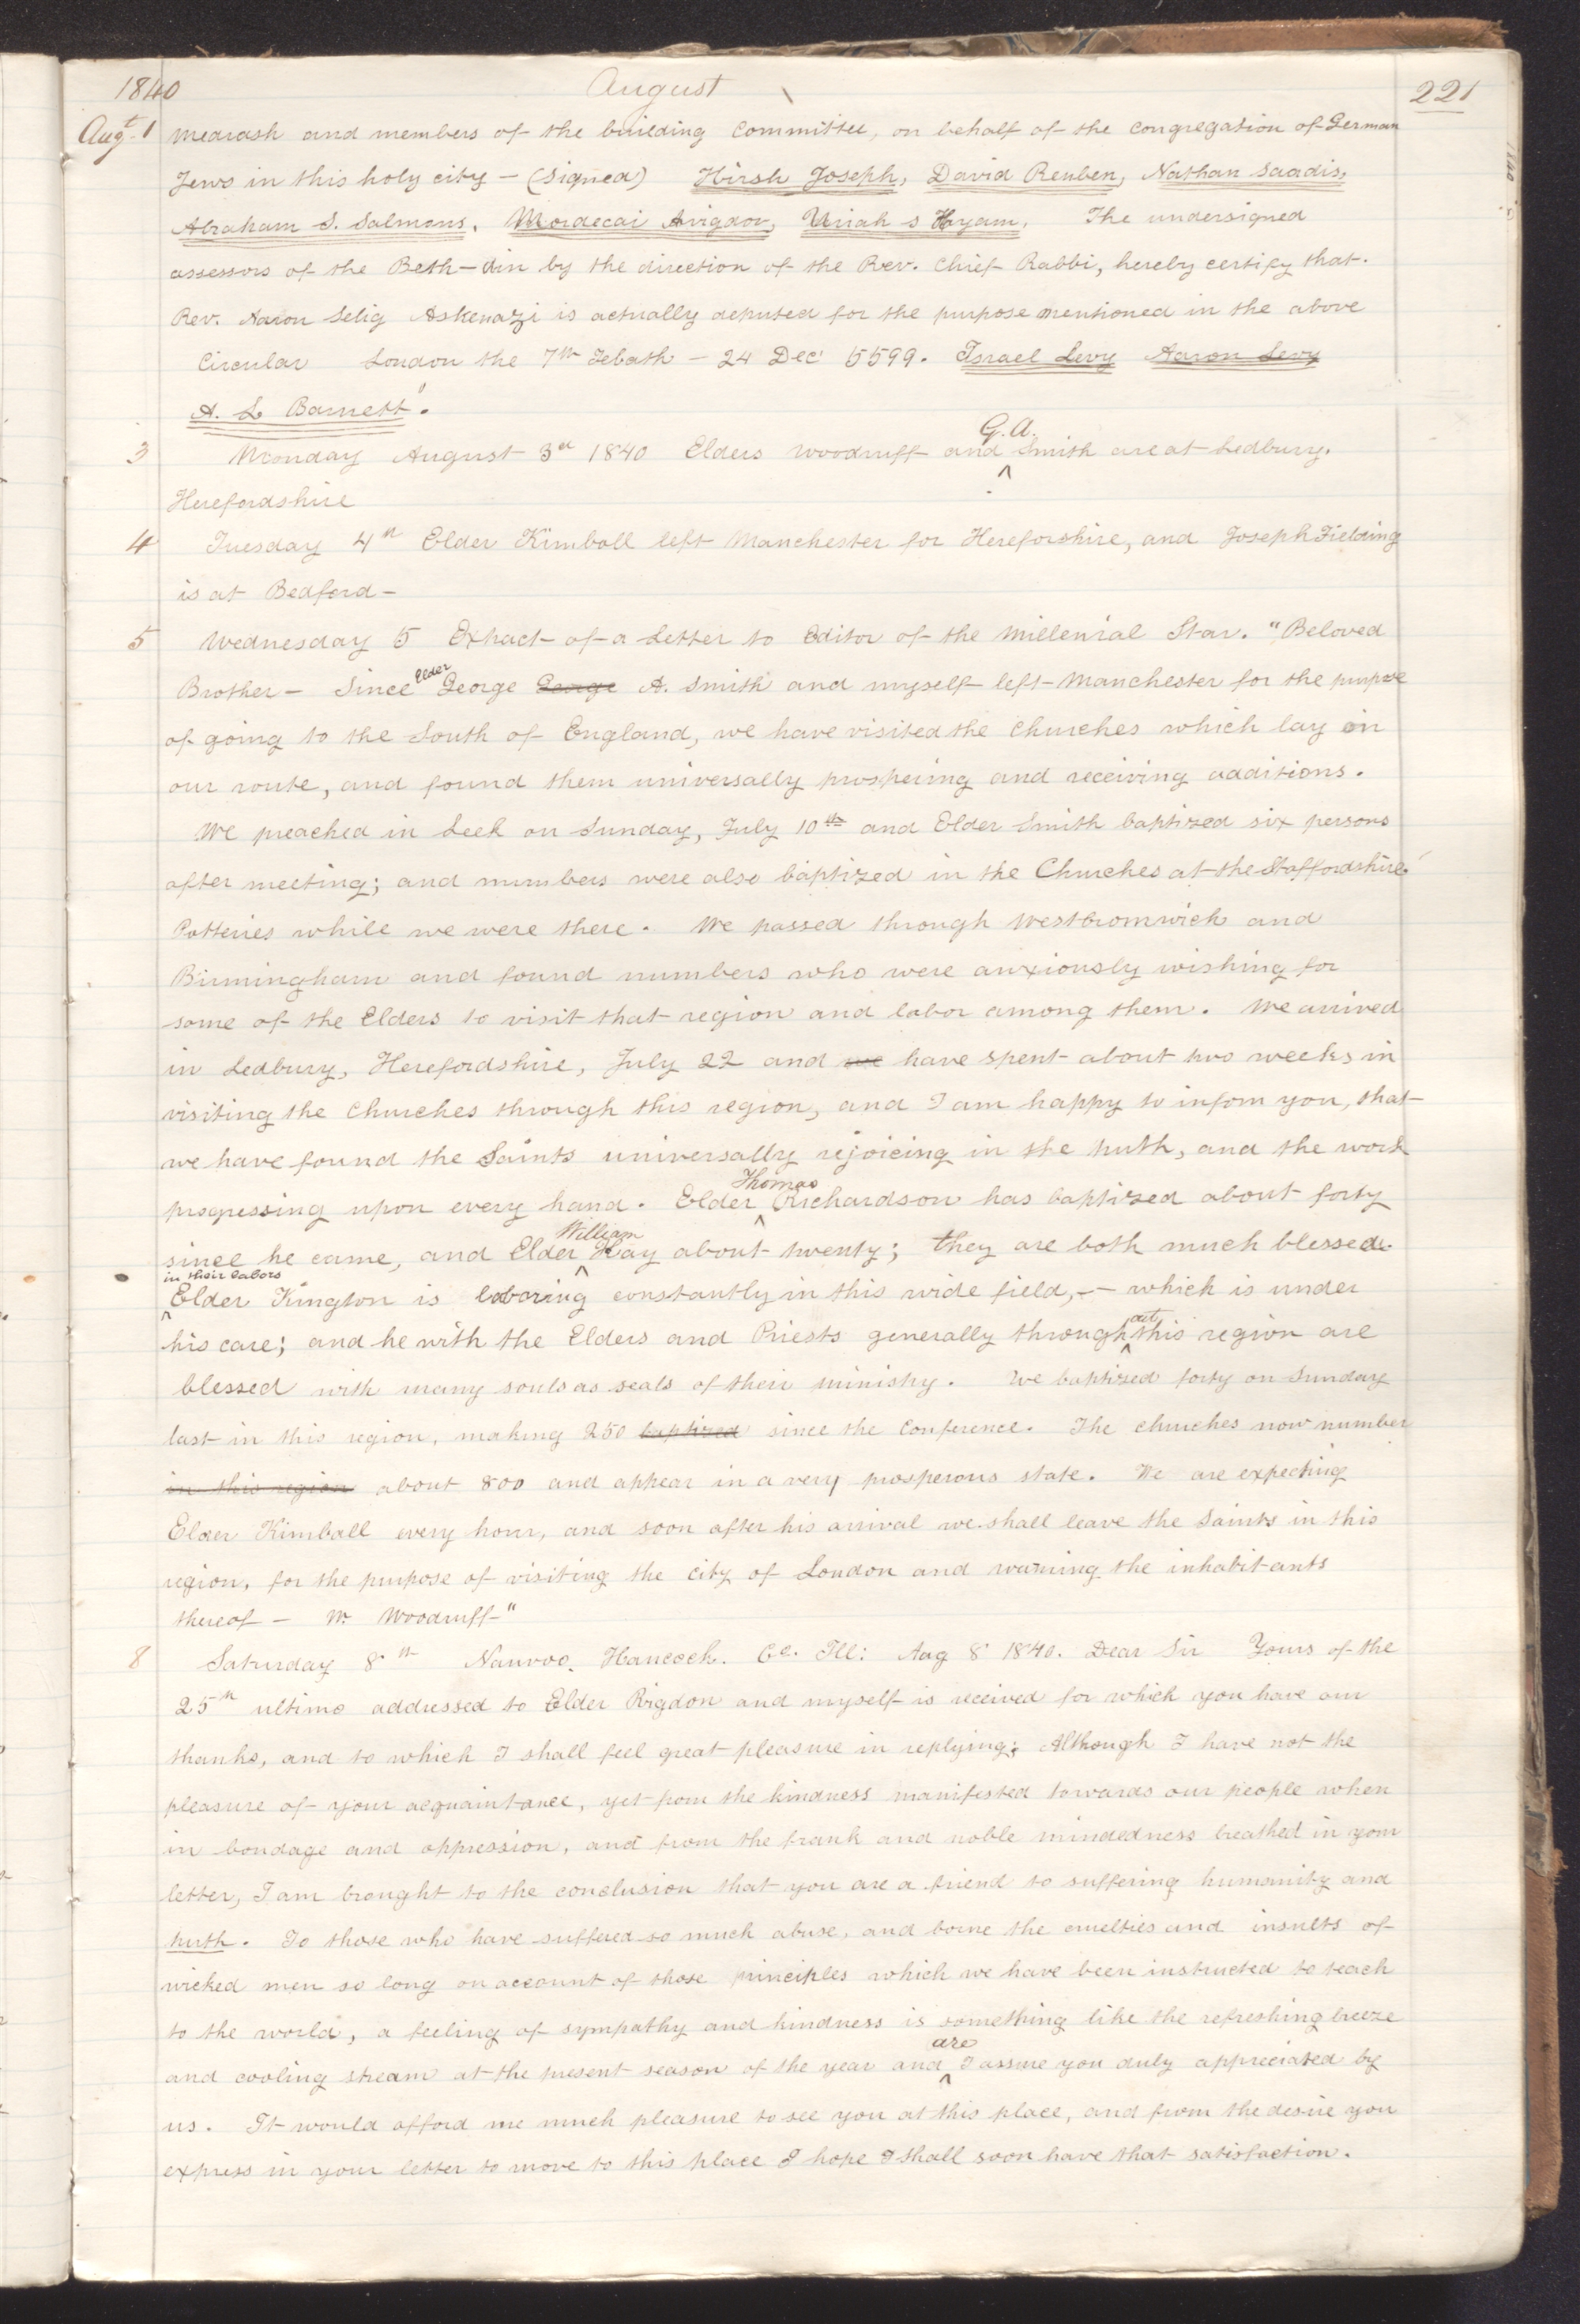 1840 August 221
Augt 1 medrash and members of the building Committee, on behalf of the congregation of German
Jews in this holy city — (signed) Hirsh Joseph, David Reuben, Nathan Saadis,
Abraham S. Salmons, Mordecai Avigdor, Uriah S Hyam, The undersigned
assessors of the Beth-din by the direction of the Rev. Chief Rabbi, hereby certify that.
Rev. Aaron Selig Askenazi is actually deputed for the purpose mentioned in the above
Circular London the 7th Tebath — 24 Dec 5599. Israel Levy Aaron Levy
A. L Barnett".
3 Monday August 3d 1840 Elders Woodruff and G. A. Smith are at Ledbury.
Herefordshire
4 Tuesday 4th Elder Kimball left Manchester for Hereforshire, and Joseph Fielding
is at Bedford —
5 Wednesday 5 Extract of a Letter to Editor of the Millenial Star. "Beloved
Brother — Since Elder George George A. Smith and myself left Manchester for the purpose
of going to the South of England, we have visited the churches which lay in
our route, and found them universally prospering and receiving additions.
We preached in Leek on Sunday, July 10th and Elder Smith baptized six persons
after meeting; and numbers were also baptized in the Churches at the Staffordshire
Potteries while we were there. We passed through Westbromwich and
Birmingham and found numbers who were anxiously wishing for
some of the Elders to visit that region and labor among them. We arrived
in Ledbury, Herefordshire, July 22 and we have spent about two weeks in
visiting the churches through this region, and I am happy to inform you, that
we have found the Saints universally rejoicing in the truth, and the work
progressing upon every hand. Elder Thomas Richardson has baptized about forty
since he came, and Elder William Kay about twenty; they are both much blessed
in their labors Elder Kington is laboring constantly in this wide field, — which is under
his care; and he with the Elders and Priests generally throughout this region are
blessed with many souls as seals of their ministry. We baptized forty on Sunday
last in this region, making 250 baptized since the Conference. The churches now number
in this region about 800 and appear in a very prosperous state. We are expecting
Elder Kimball every hour, and soon after his arrival we shall leave the Saints in this
region, for the purpose of visiting the city of London and warning the inhabitants
thereof — W. Woodruff"
8 Saturday 8th Nauvoo. Hancock. Co. Ill: Aug 8 1840. Dear Sir Yours of the
25th ultimo addressed to Elder Rigdon and myself is received for which you have our
thanks, and to which I shall feel great pleasure in replying; Although I have not the
pleasure of your acquaintance, yet from the kindness manifested towards our people when
in bondage and oppression, and from the frank and noble mindedness breathed in your
letter, I am brought to the conclusion that you are a friend to suffering humanity and
truth. To those who have suffered so much abuse, and borne the cruelties and insults of
wicked men so long on account of those principles which we have been instructed to teach
to the world, a feeling of sympathy and kindness is something like the refreshing breeze
and cooling stream at the present season of the year and are I assure you duly appreciated by
us. It would afford me much pleasure to see you at this place, and from the desire you
express in your letter to move to this place I hope I shall soon have that satisfaction.